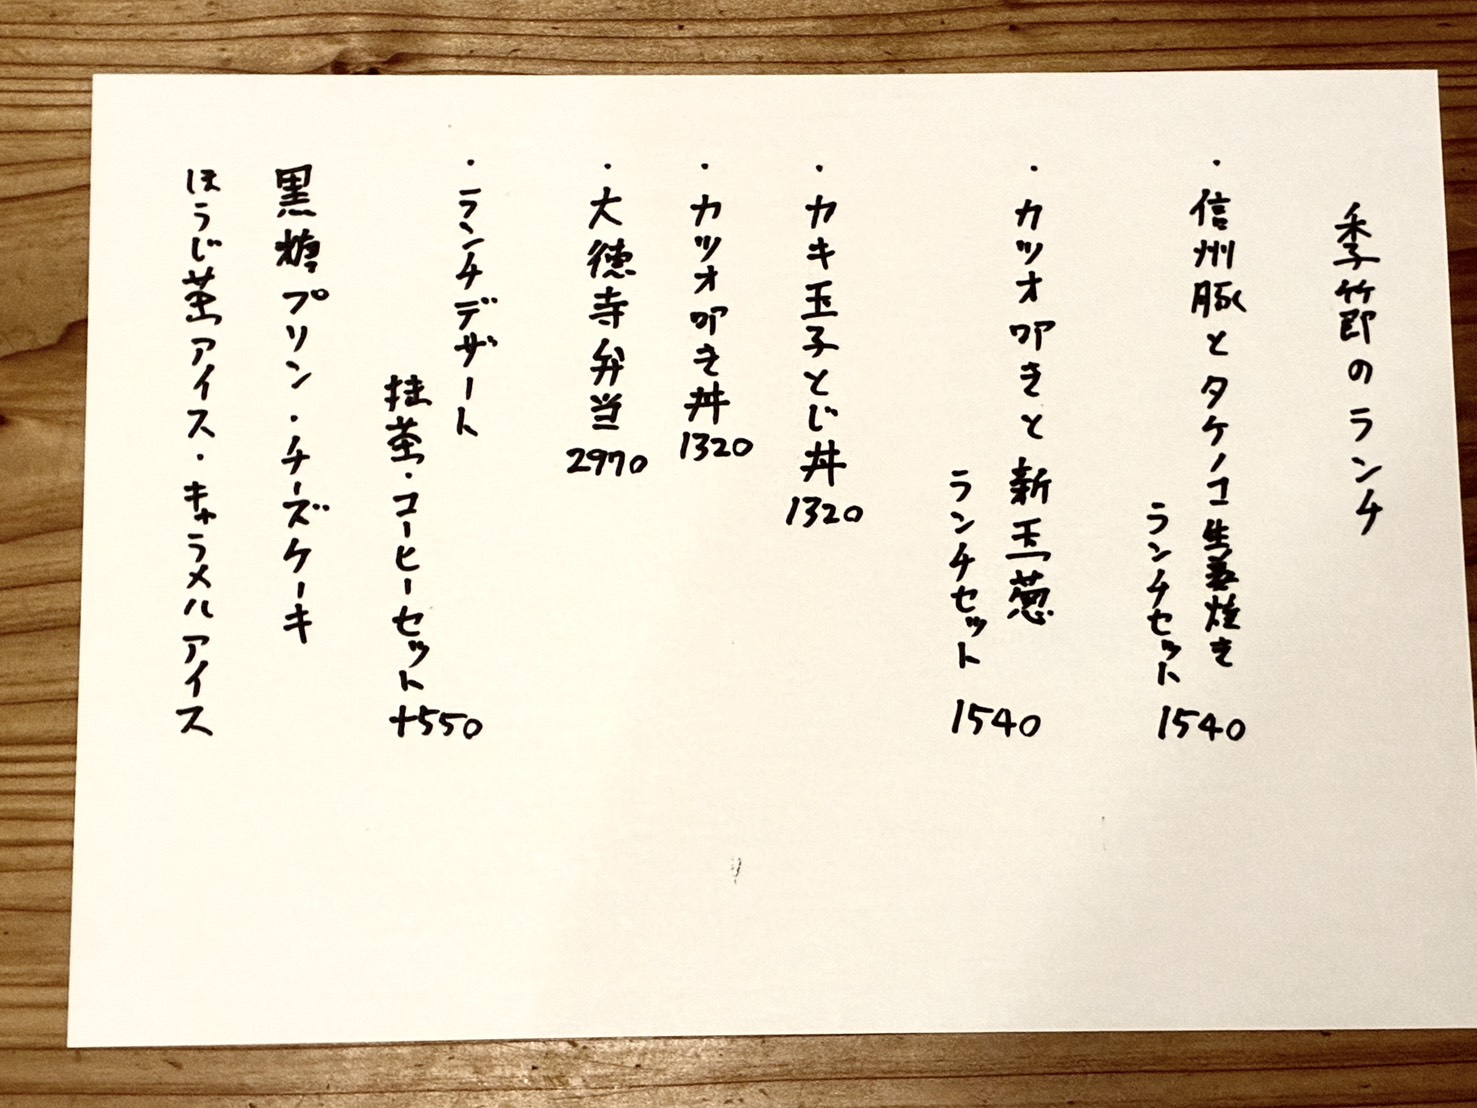 季節のランチ
・信州豚とタケノコ生姜焼き
ランチセット 1540
・カツオ叩きと新玉葱
ランチセット 1540
・カキ玉子とじ丼 1320
・カツオ叩き丼 1320
・大徳寺弁当 2970
・ランチデザート
抹茶・コーヒーセット +550
黒糖プリン・チーズケーキ
ほうじ茶アイス・キャラメルアイス